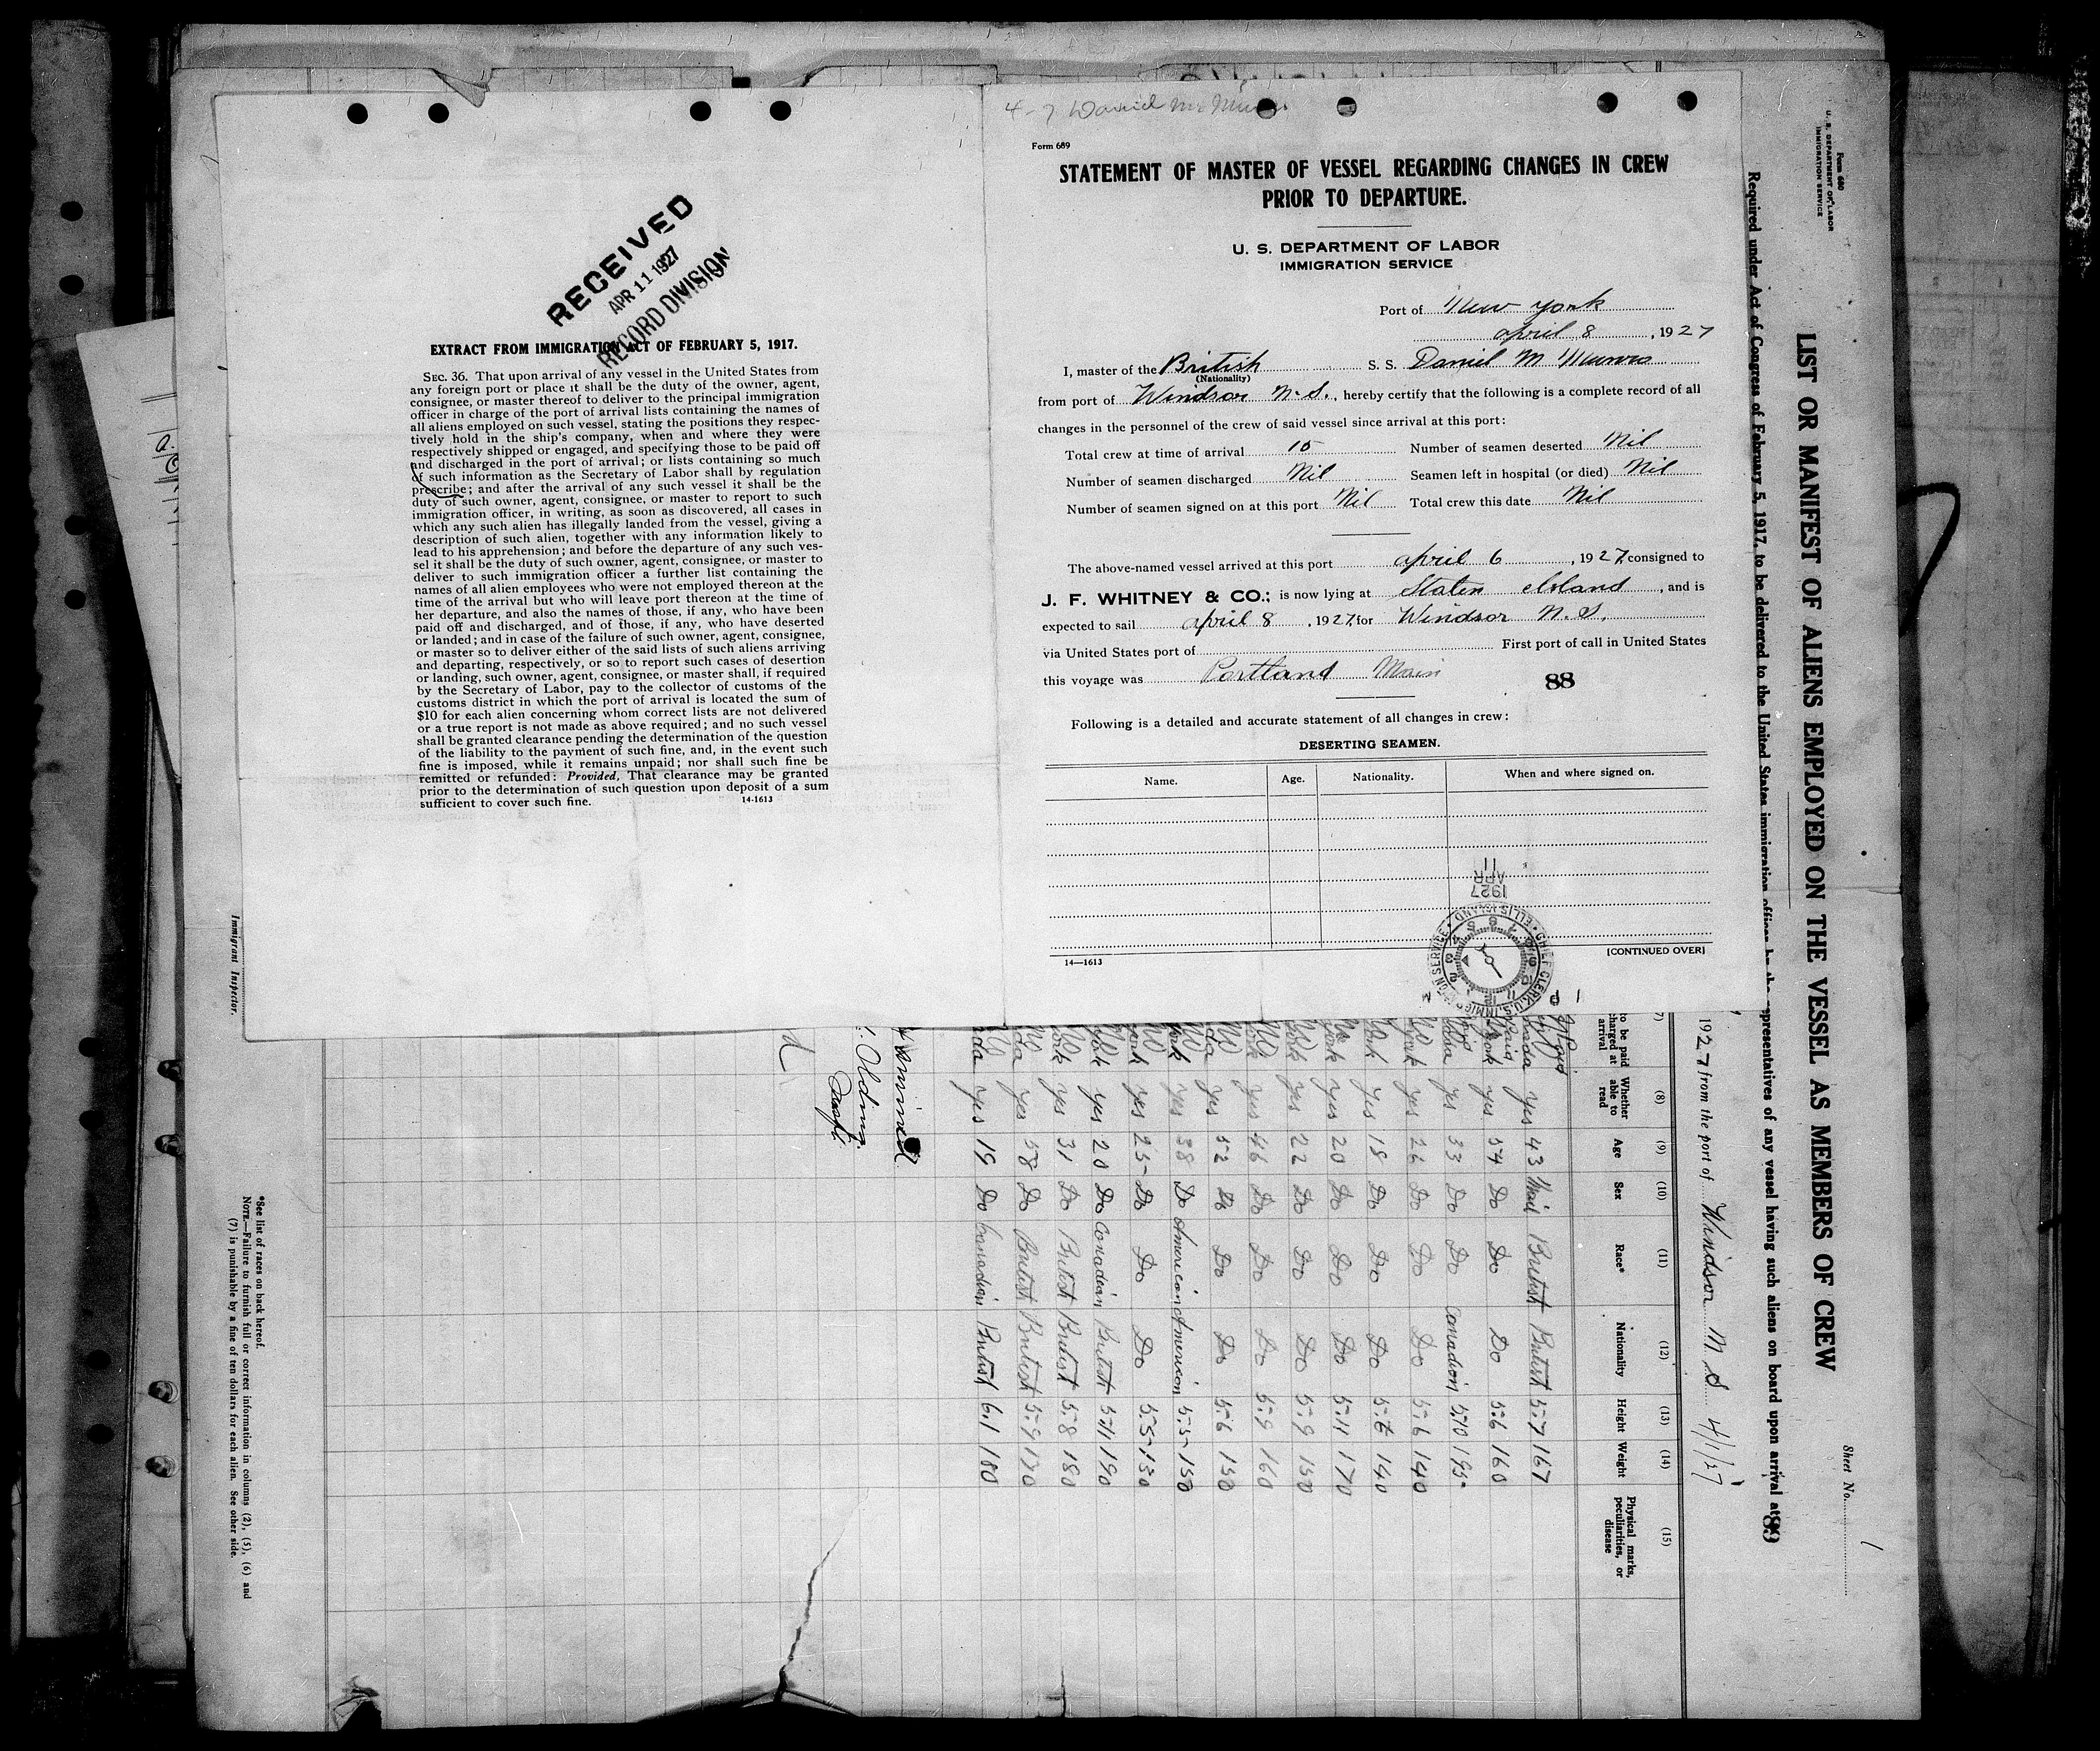 RECEIVED
APR 11 1927
RECORD DIVISION
EXTRACT FROM IMMIGRATION ACT OF FEBRUARY 5, 1917.
SEC. 36. That upon arrival of any vessel in the United States from
any foreign port or place it shall be the duty of the owner, agent,
consignee, or master thereof to deliver to the principal immigration
officer in charge of the port of arrival lists containing the names of
all aliens employed on such vessel, stating the positions they respec-
tively hold in the ship's company, when and where they were
respectively shipped or engaged, and specifying those to be paid off
and discharged in the port of arrival; or lists containing so much
of such information as the Secretary of Labor shall by regulation
prescribe; and after the arrival of any such vessel it shall be the
duty of such owner, agent, consignee, or master to report to such
immigration officer, in writing, as soon as discovered, all cases in
which any such alien has illegally landed from the vessel, giving a
description of such alien, together with any information likely to
lead to his apprehension; and before the departure of any such ves-
sel it shall be the duty of such owner, agent, consignee, or master to
deliver to such immigration officer a further list containing the
names of all alien employees who were not employed thereon at the
time of the arrival but who will leave port thereon at the time of
her departure, and also the names of those, if any, who have been
paid off and discharged, and of those, if any, who have deserted
or landed; and in case of the failure of such owner, agent, consignee,
or master so to deliver either of the said lists of such aliens arriving
and departing, respectively, or so to report such cases of desertion
or landing, such owner, agent, consignee, or master shall, if required
by the Secretary of Labor, pay to the collector of customs of the
customs district in which the port of arrival is located the sum of
$10 for each alien concerning whom correct lists are not delivered
or a true report is not made as above required; and no such vessel
shall be granted clearance pending the determination of the question
of the liability to the payment of such fine, and, in the event such
fine is imposed, while it remains unpaid; nor shall such fine be
remitted or refunded: Provided, That clearance may be granted
prior to the determination of such question upon deposit of a sum
sufficient to cover such fine. 14-1613
4-7
Form 689
STATEMENT OF MASTER OF VESSEL REGARDING CHANGES IN CREW
PRIOR TO DEPARTURE.
U. S. DEPARTMENT OF LABOR
IMMIGRATION SERVICE
Port of New York
april 8, 1927
I, master of the British S. S. Daniel M Munro
(Nationality)
from port of Windsor N.S., hereby certify that the following is a complete record of all
changes in the personnel of the crew of said vessel since arrival at this port:
Total crew at time of arrival 15 Number of seamen deserted Nil
Number of seamen discharged Nil Seamen left in hospital (or died) Nil
Number of seamen signed on at this port Nil Total crew this date Nil
The above-named vessel arrived at this port april 6, 1927, consigned to
J. F. WHITNEY & CO.; is now lying at Staten Island, and is
expected to sail april 8, 1927, for Windsor N.S.
via United States port of First port of call in United States
this voyage was Portland Main 88
Following is a detailed and accurate statement of all changes in crew:
DESERTING SEAMEN.
Name. Age. Nationality. When and where signed on.
14—1613 [CONTINUED OVER]
1927
APR
11
CHIEF CLERK, U.S. IMMIGRATION SERVICE ELLIS ISLAND
Form 680
U. S. DEPARTMENT OF LABOR
IMMIGRATION SERVICE
Sheet No. 1
LIST OR MANIFEST OF ALIENS EMPLOYED ON THE VESSEL AS MEMBERS OF CREW
Required under Act of Congress of February 5, 1917, to be delivered to the United States immigration officer by the representatives of any vessel having such aliens on board upon arrival at
89
1927 from the port of Windsor N S 4/1/27
(8) (9) (10) (11) (12) (13) (14) (15)
Whether able to read Age Sex Race* Nationality Height Weight Physical marks, peculiarities, or disease
yes 43 Mail British British 5-7 167
yes 54 Do Do Do 5-6 160
yes 33 Do Do Canadian 5-10 195
yes 26 Do Do Do 5-6 140
yes 18 Do Do Do 5-6 140
yes 20 Do Do Do 5-11 170
yes 22 Do Do Do 5-9 150
yes 46 Do Do Do 5-9 160
yes 52 Do Do Do 5-6 150
yes 38 Do American American 5-5 150
yes 25 Do Do Do 5-5 150
yes 20 Do Canadian British 5-11 190
yes 31 Do British British 5-8 180
yes 58 Do British British 5-9 170
yes 19 Do Canadian British 6-1 180
Immigrant Inspector.
*See list of races on back hereof.
NOTE.—Failure to furnish full or correct information in columns (2), (5), (6) and
(7) is punishable by a fine of ten dollars for each alien. See other side.